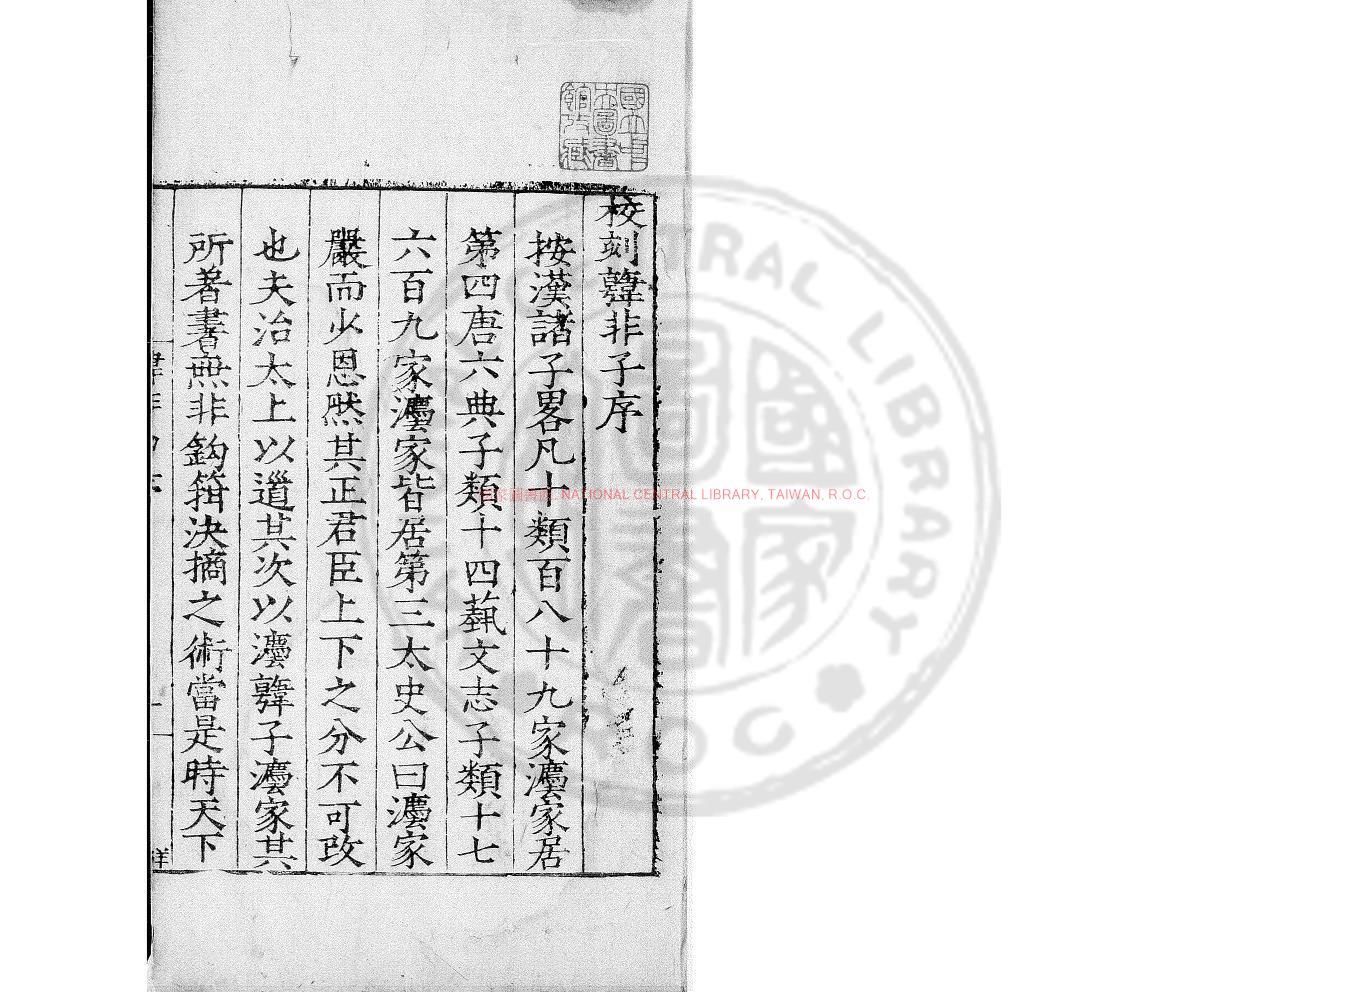 校刻韓非子序
按漢諸子畧凡十類百八十九家灋家居
第四唐六典子類十四藝文志子類十七
六百九家灋家皆居第三太史公曰灋家
嚴而少恩然其正君臣上下之分不可改
也夫治太上以道其次以灋韓子灋家其
所著書無非鈎箝決摘之術當是時天下
國立中
央圖書
館收藏
國家圖書館, NATIONAL CENTRAL LIBRARY, TAIWAN, R.O.C.
CENTRAL LIBRARY
ROC